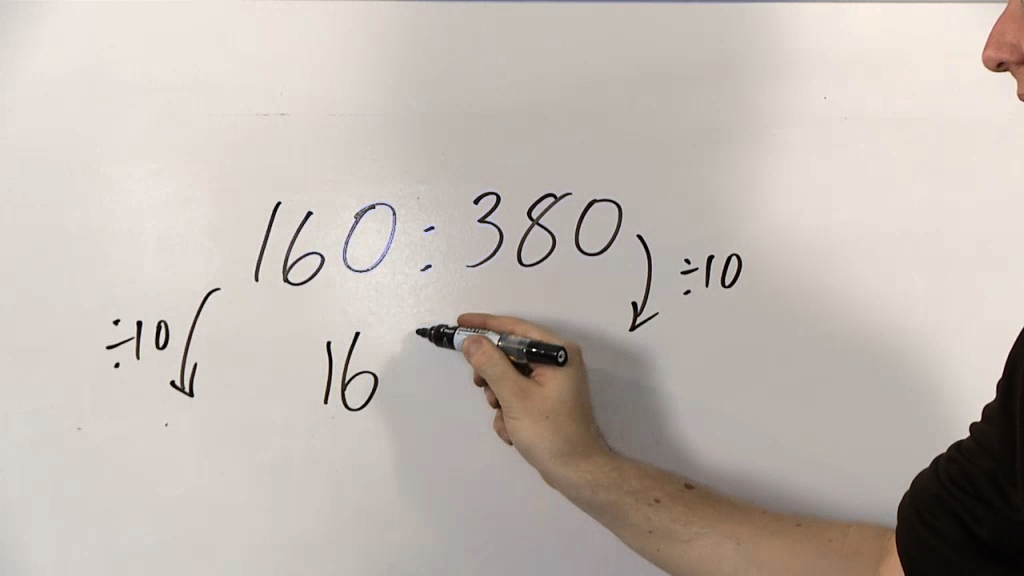 160:380
÷10
÷10
16